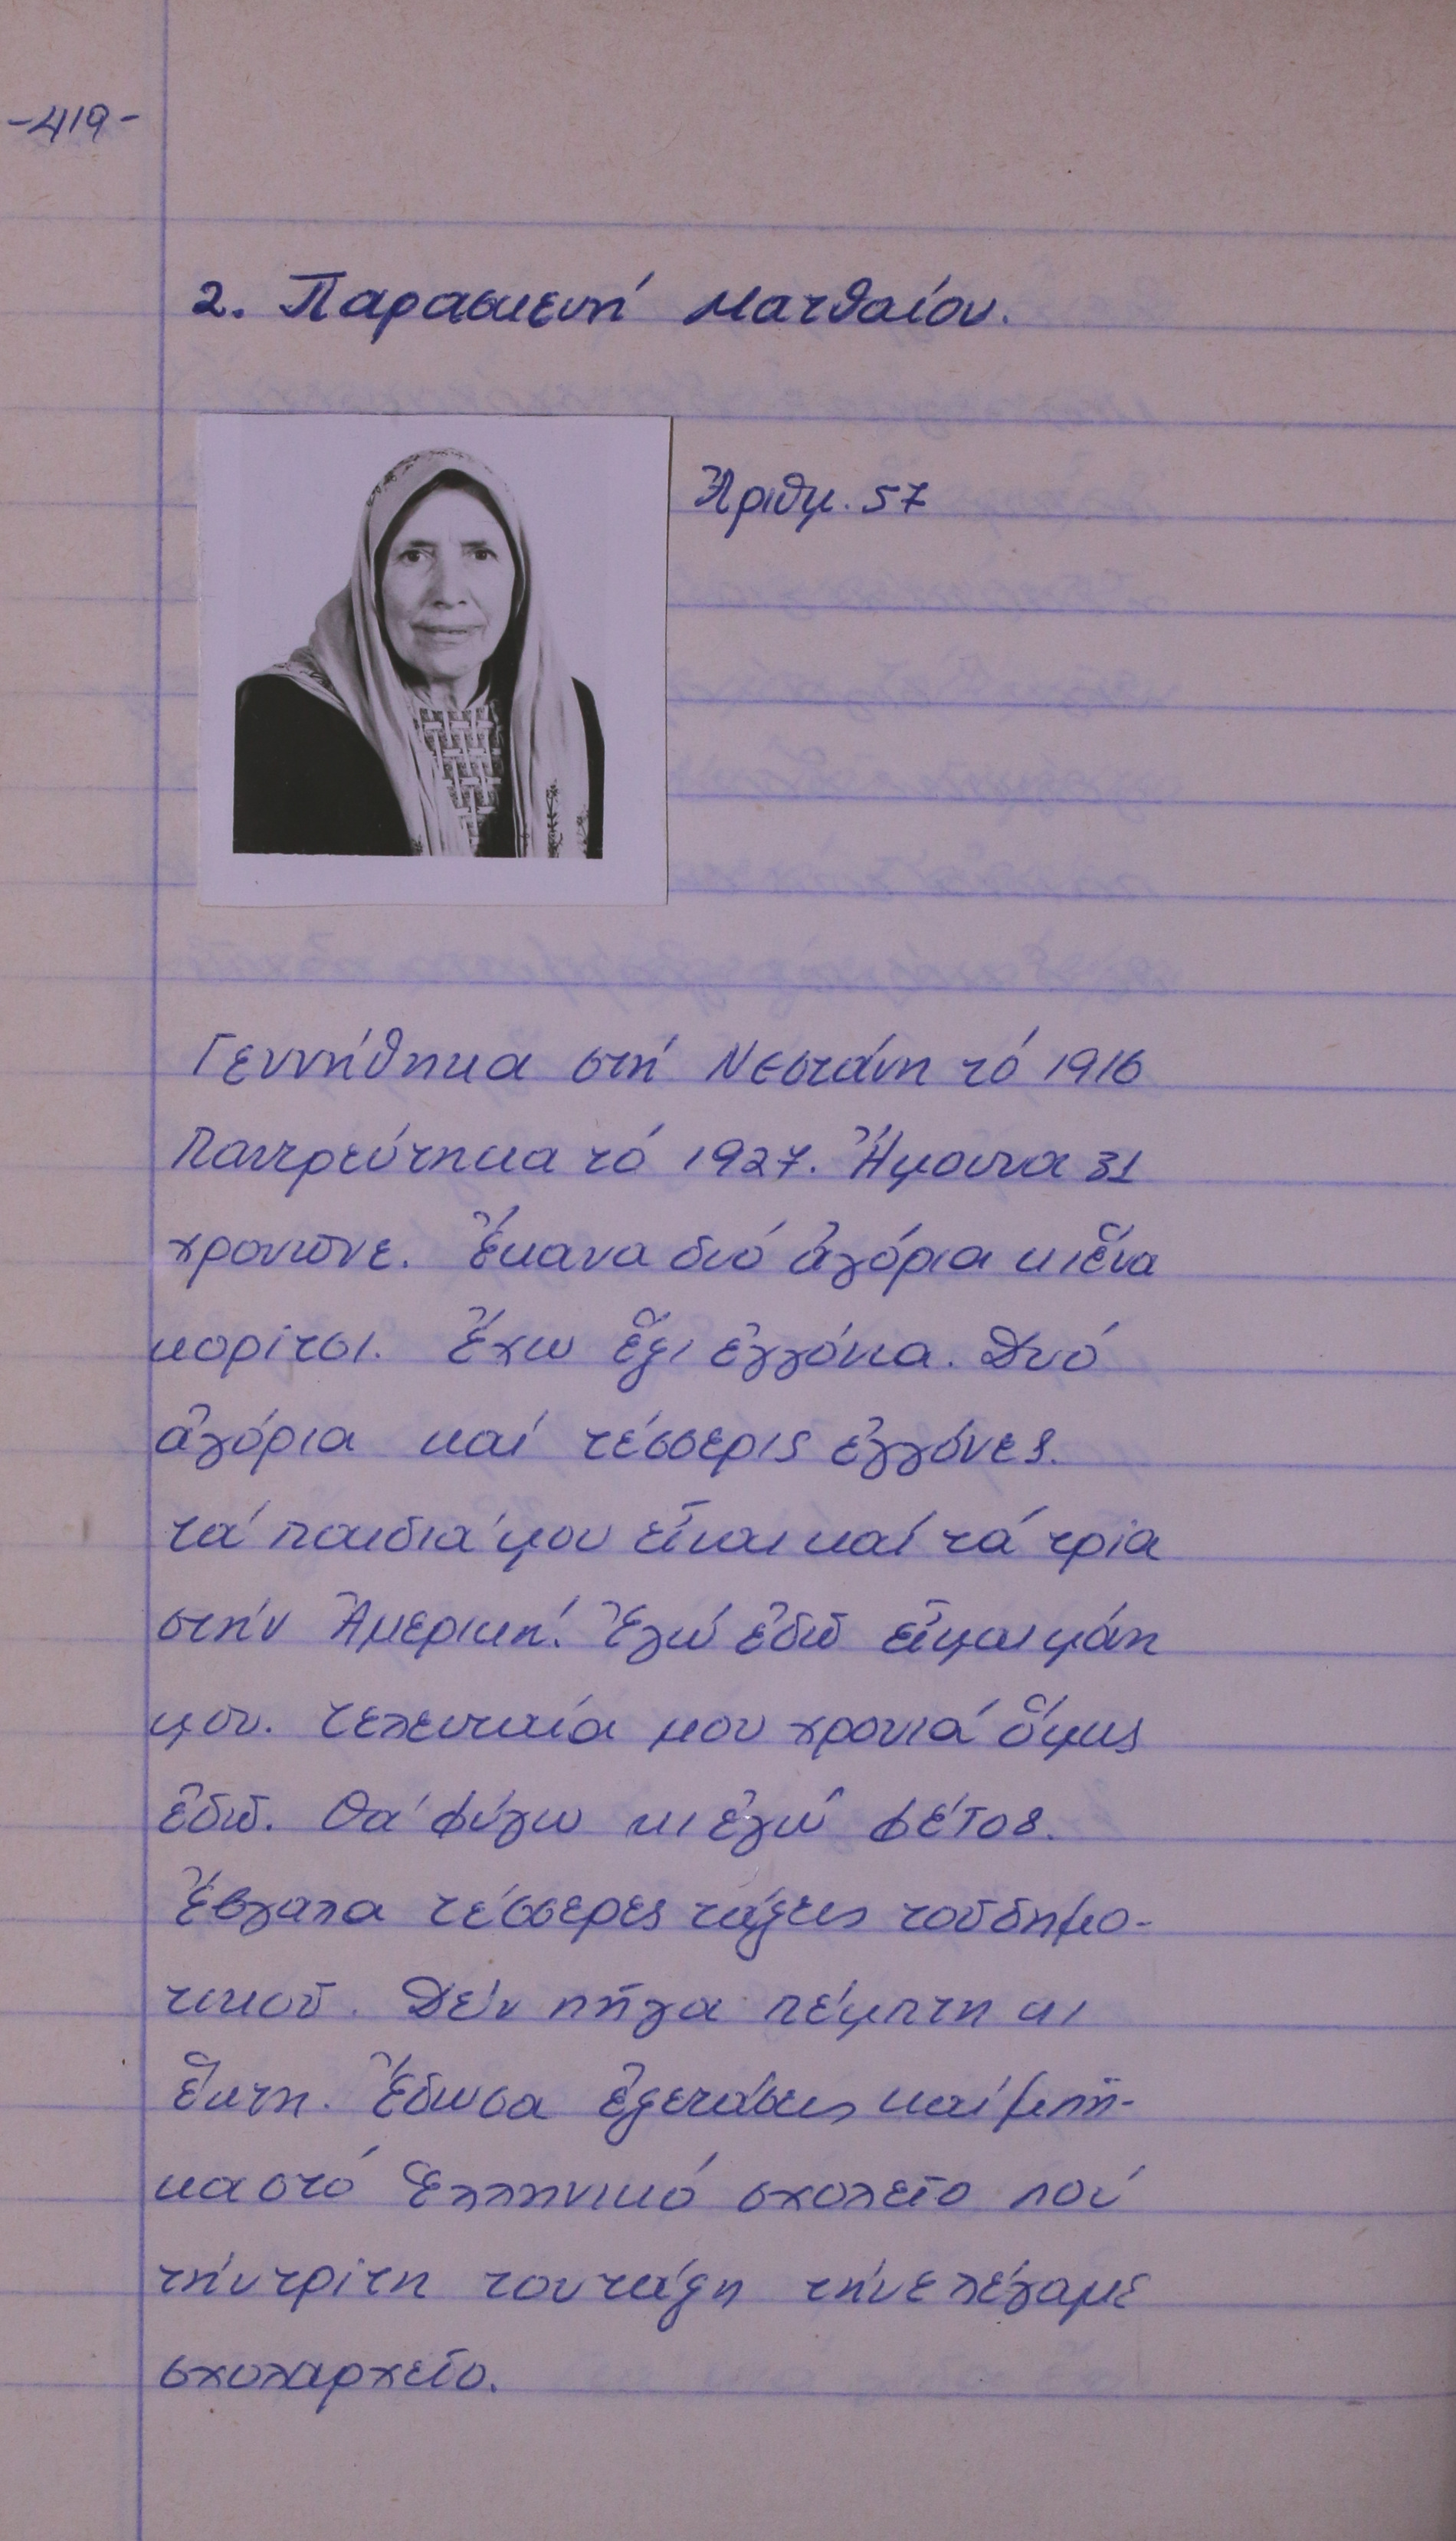 -419-
2. Παρασκευή Ματθαίου.
Ἀριθμ. 57
Γεννήθηκα στή Νεστάνη τό 1916
Παντρεύτηκα τό 1927. Ἤμουνα 31
χρονῶνε. Ἔκανα δυό ἀγόρια κι ἕνα
κορίτσι. Ἔχω ἕξι ἐγγόνια. Δυό
ἀγόρια καί τέσσερις ἐγγόνες.
τά παιδιά μου εἶναι καί τά τρία
στήν Ἀμερική. Ἐγώ ἐδῶ εἶμαι μόνη
μου. τελευταία μου χρονιά ὅμως
ἐδῶ. Θά φύγω κι ἐγώ φέτος.
Ἔβγαλα τέσσερες τάξεις τοῦ δημο-
τικοῦ. Δέν πῆγα πέμπτη κι
ἕκτη. Ἔδωσα ἐξετάσεις καί μπῆ-
κα στό Ἑλληνικό σχολεῖο πού
τήν τρίτη του τάξη τήνε λέγαμε
σχολαρχεῖο.